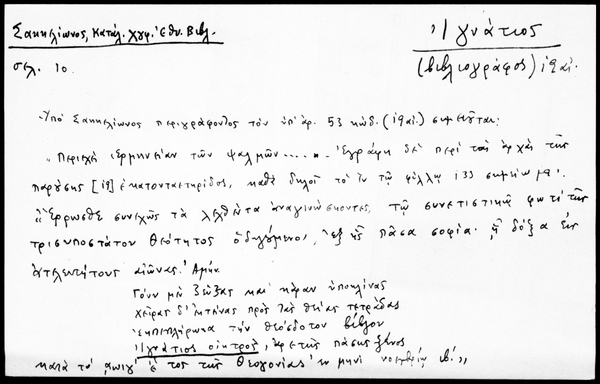 Σακκελίωνος, Κατάλ. Χγφ. Ἐθν. Βιβλ.
Ἰγνάτιος
σελ. 10.
(βιβλιογράφος) ιθ αἰ.
Ὑπὸ Σακκελίωνος περιγράφοντος τὸν ὑπ' ἀρ. 53 κώδ. (ιθ αἰ.) σημειοῦται:
"Περιέχει ἑρμηνείαν τῶν ψαλμῶν..... Ἐγράφη δὲ περὶ τὰς ἀρχὰς τῆς
παρούσης [ιθ] ἑκατονταετηρίδος, καθὰ δηλοῖ τὸ ἐν τῷ φύλλῳ 133 σημείωμα.
Ἔρρωσθε συνεχῶς τὰ λεχθέντα ἀναγινώσκοντες, τῷ συνετιστικῷ φωτὶ τῆς
τρισυποστάτου θεότητος ὁδηγούμενοι, ἐξ ἧς πᾶσα σοφία. ᾗ δόξα εἰς
ἀτελευτήτους αἰῶνας. Ἀμήν.
Γόνυ μὲν ζεύξας καὶ κάραν ὑποκλίνας
χεῖρας δ' ἐκτείνας πρὸς τὰς θείας τετράδας
ἐκπεπλήρωκα τὴν θεόσδοτον βίβλον
Ἰγνάτιος οἰκτρός, ἀρετῆς πάσης ξένος
κατὰ τὸ αωιγ' ἔτος τῆς Θεογονίας ἐν μηνὶ νοεμβρίῳ